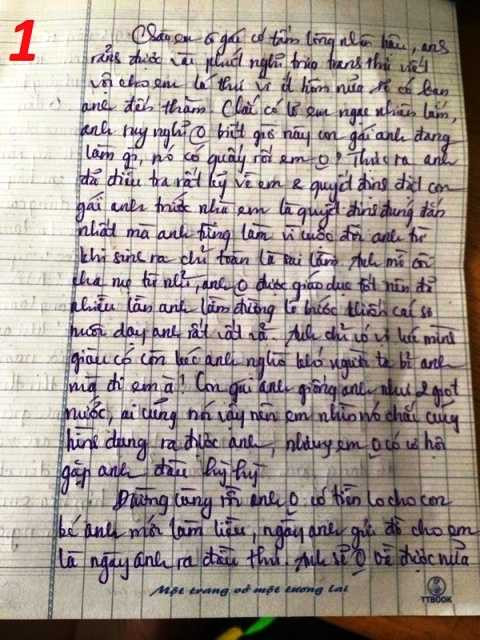 1
Chào em cô gái có tấm lòng nhân hậu, anh
rảnh được vài phút nghỉ trưa tranh thủ viết
vội cho em lá thư vì ít hôm nữa sẽ có bạn
anh đến thăm. Chắc có lẽ em ngạc nhiên lắm,
anh suy nghĩ 0 biết giờ này con gái anh đang
làm gì, nó có quấy rối em 0? Thực ra anh
đã điều tra rất kỹ về em & quyết định đặt con
gái anh trước nhà em là quyết định đúng đắn
nhất mà anh từng làm vì cuộc đời anh từ
khi sinh ra chỉ toàn là sai lầm. Anh mồ côi
cha mẹ từ nhỏ, anh 0 được giáo dục tốt nên đã
nhiều lần anh lầm đường lỡ bước khiến cái sơ
nuôi dạy anh rất vất vả. Anh chỉ có vợ lúc mình
giàu có còn lúc anh nghèo khó người ta bỏ anh
mà đi em à! Con gái anh giống anh như 2 giọt
nước, ai cũng nói vậy nên em nhìn nó chắc cũng
hình dung ra được anh, nhưng em 0 có cơ hội
gặp anh đâu hỳ hỳ
Đường cùng rồi anh 0 có tiền lo cho con
bé anh mới làm liều, ngày anh gửi đồ cho em
là ngày anh ra đầu thú. Anh sẽ 0 về được nữa
Một trang vở một tương lai
TTBOOK